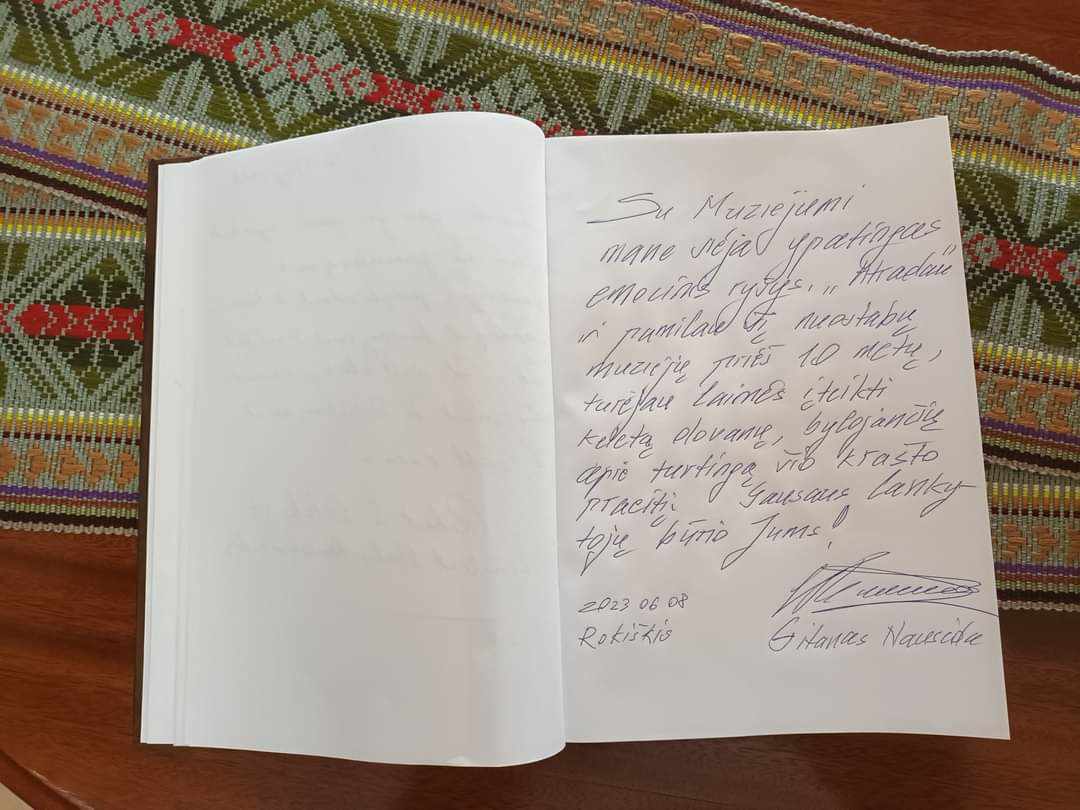 Su Muziejumi
mane sieja ypatingas
emocinis ryšys. „Atradau"
ir pamilau šį nuostabų
muziejų prieš 10 metų,
turėjau laimės įteikti
keletą dovanų, bylojančių
apie turtingą šio krašto
praeitį. Gausaus lanky-
tojų būrio Jums!
2023 06 08
Rokiškis
Gitanas Nausėda